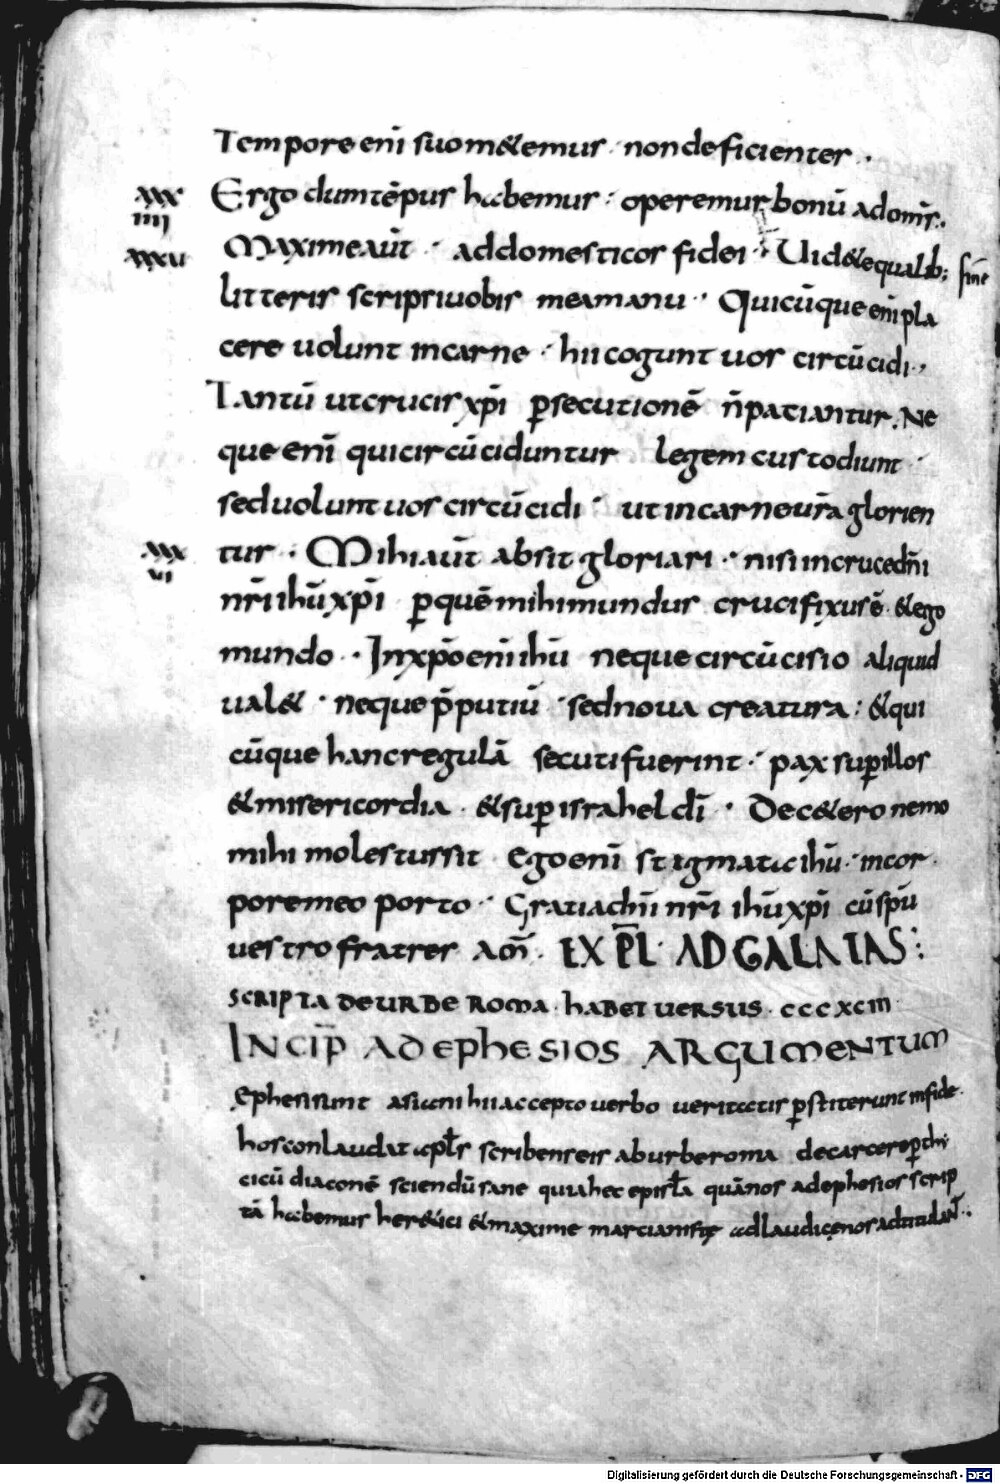 Tempore enī suo m&emus · non deficientes ·
XXX IIII Ergo dum tēpus habemus · operemur bonū ad om̄s ·
XXXV Maxime aūt · ad domesticos fidei · Uid&e qualib; sine
litteris scripsi uobis mea manu · Quicūque enī pla
cere uolunt in carne · hii cogunt uos circūcidi ·
Tantū ut crucis xp̄i ꝑsecutionē n̄ patiantur. Ne
que enī qui circūciduntur legem custodiunt ·
sed uolunt uos circūcidi · ut in carne ur̄a glorien
XXX VI tur · Mihi aūt absit gloriari · nisi in cruce dn̄i
nr̄i ihū xp̄i ꝑ quē mihi mundus crucifixus ē · & ego
mundo · In xp̄o enī ihū neque circūcisio aliquid
ual& · neque p̄putiū · sed noua creatura : & qui
cūque hanc regulā secuti fuerint · pax suꝑ illos
& misericordia · & suꝑ israhel dī · De c&ero nemo
mihi molestus sit · Ego enī stigmata ihū · in cor
pore meo porto · Gratia dn̄i nr̄i ihū xp̄i cū spū
uestro fratres Am̄ · EXPL̄ · AD GALATAS :
SCRIPTA DE URBE ROMA · HABET UERSUS · CCCXCIII
INCIP̄ AD EPHESIOS ARGUMENTUM
Ephesii sunt asiani hii accepto uerbo ueritatis ꝑstiterunt in fide ·
hos conlaudat apl̄s scribens eis ab urbe roma de carcere ꝑ thi
cicū diaconē sciendū sane quia hec epistl̄a quā nos ad ephesios scrip
tā habemus her&ici & maxime marcionistę ad laudicenos adtitulant ·